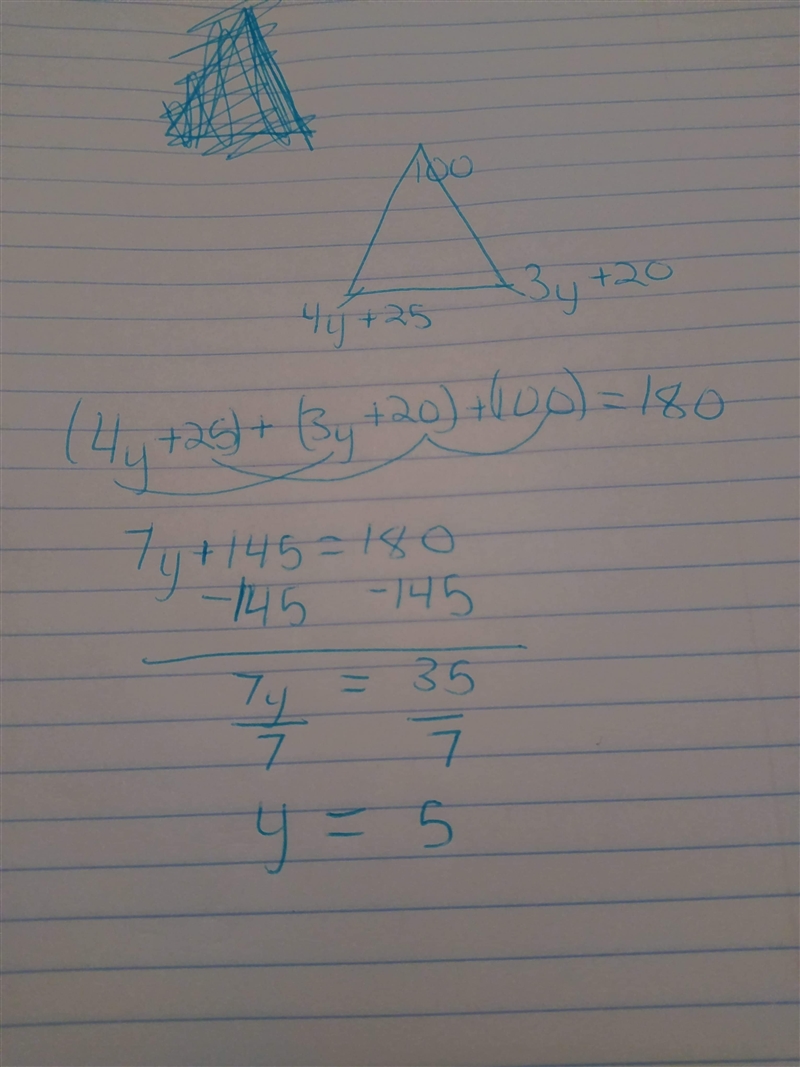 100
3y +20
4y +25
(4y +25) + (3y +20) +(100) = 180
7y +145 = 180
-145 -145
7y = 35
7 7
y = 5